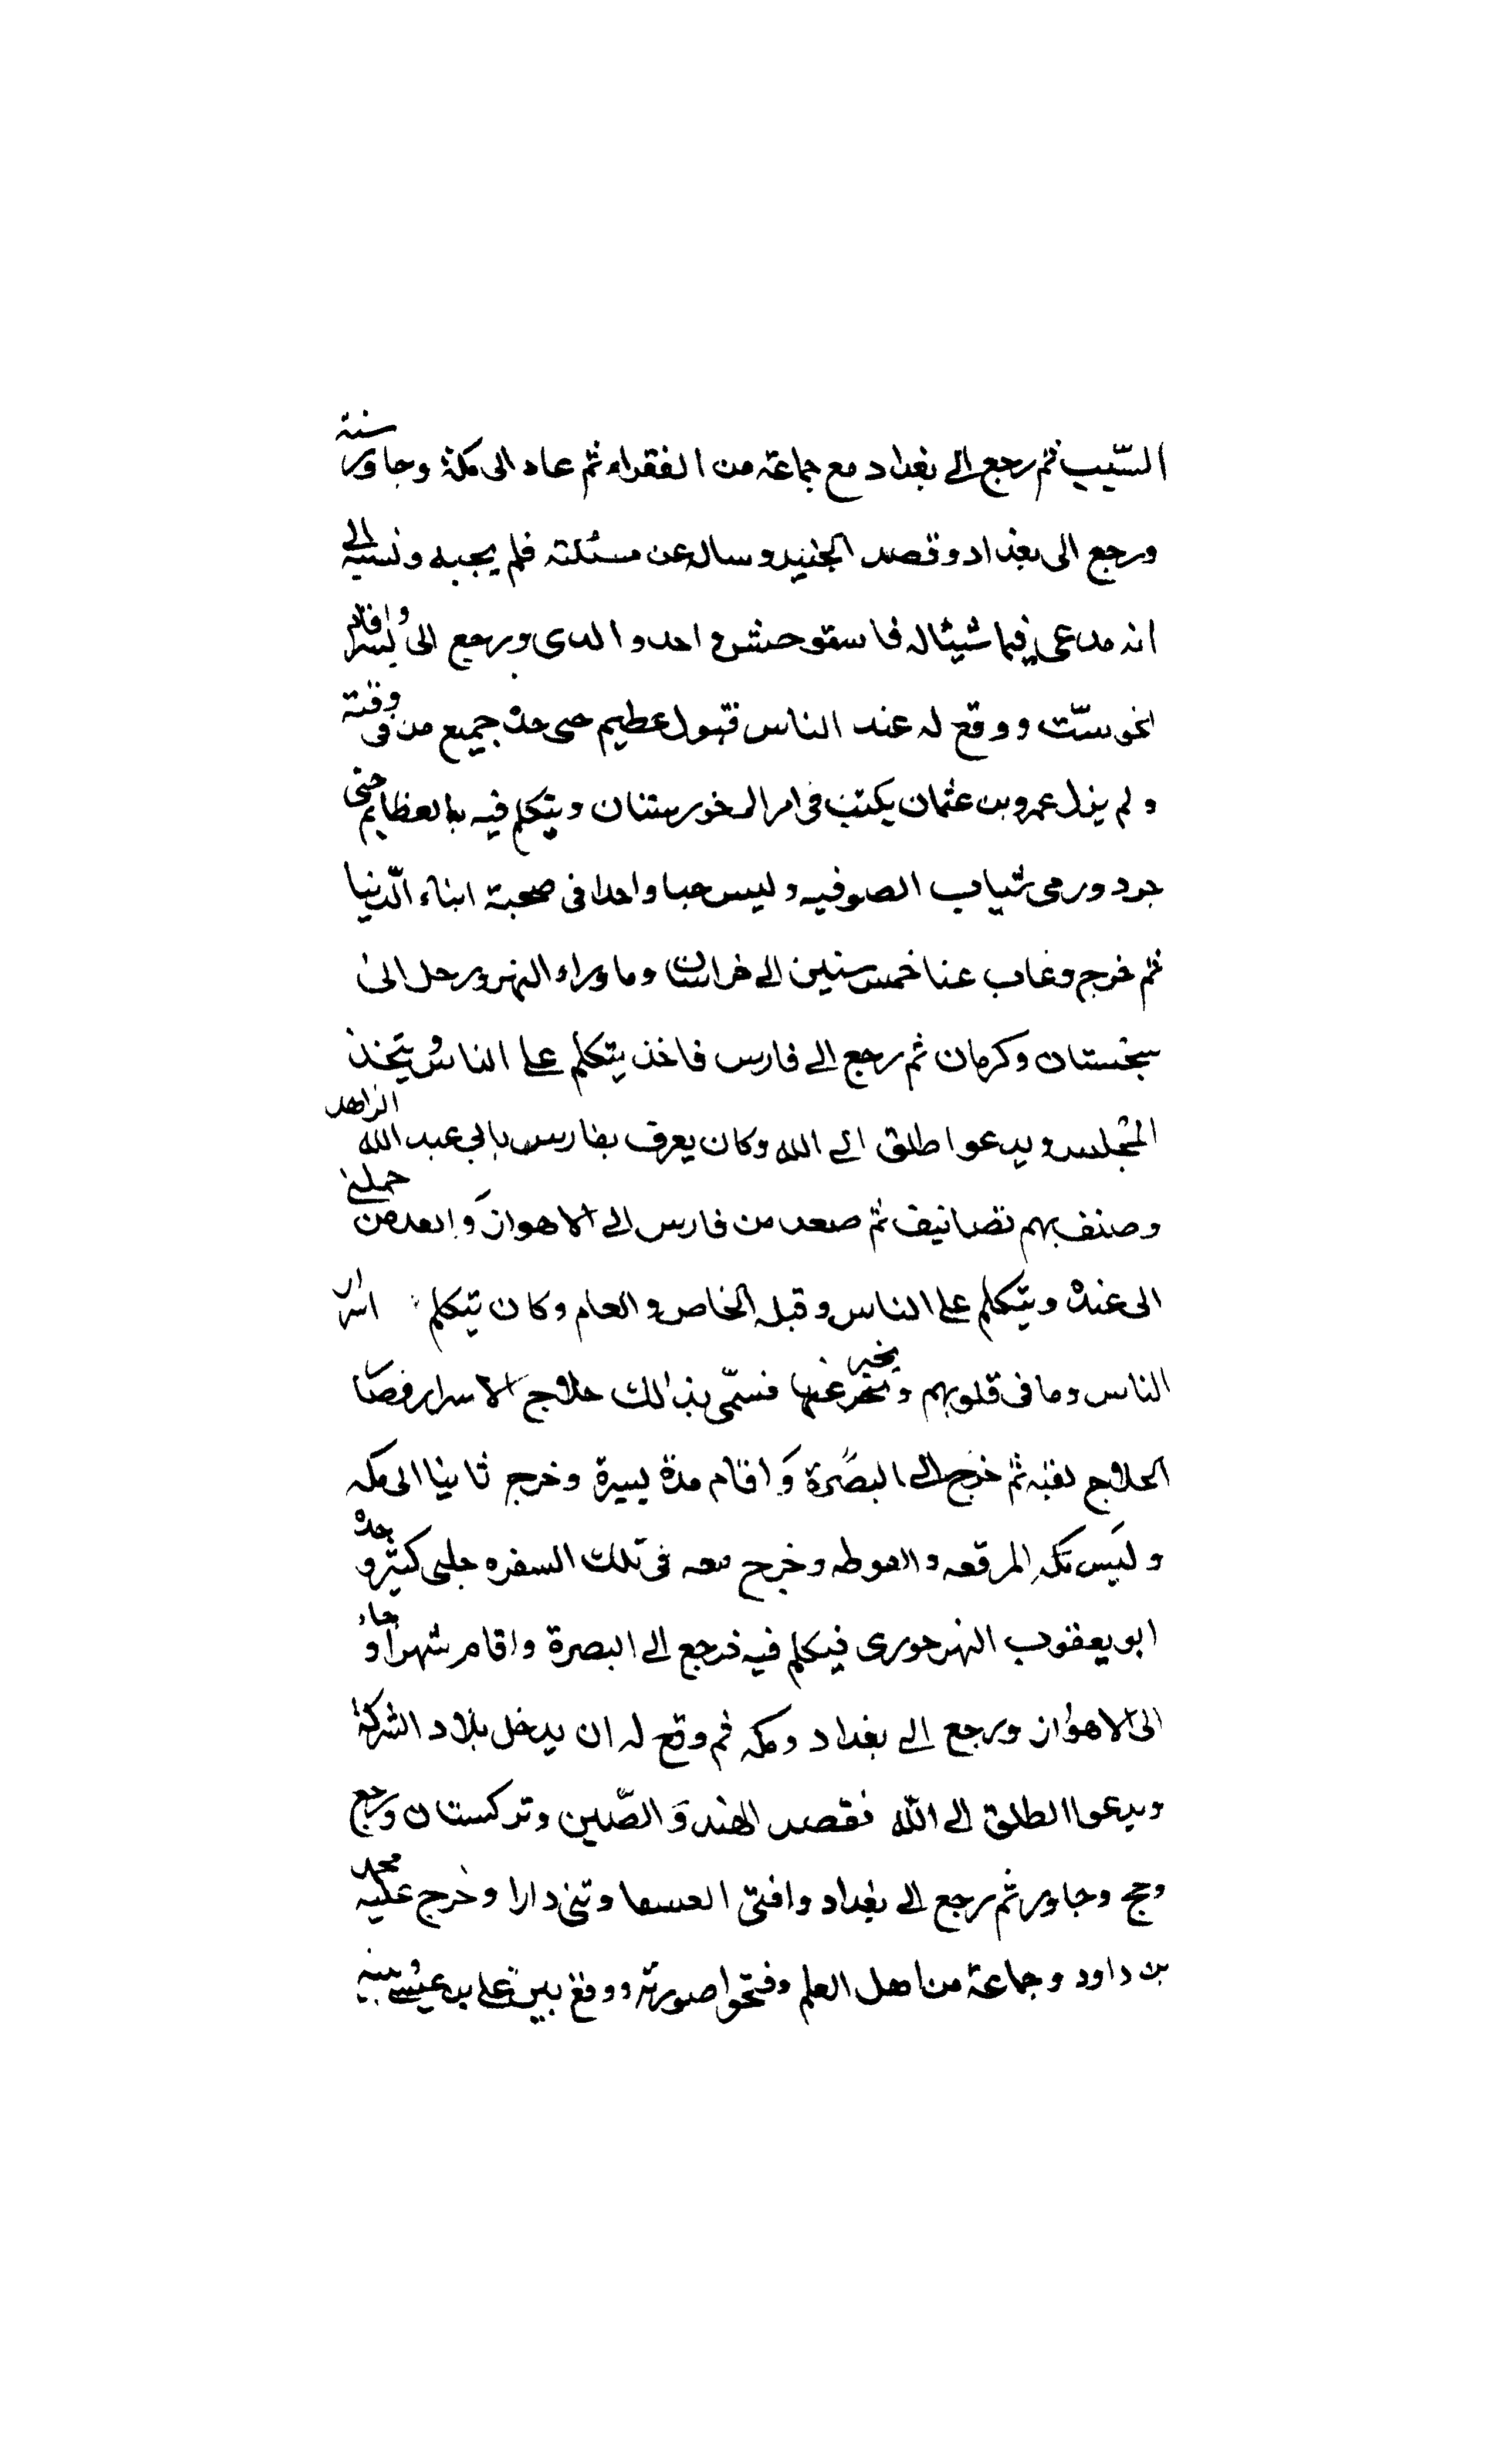 السّيب ثم رجع الى بغداد مع جماعة من الفقراء ثم عاد الى مكة وجاور سنة
ورجع الى بغداد وقصد الجنيد وساله عن مسئلته فلم يجبه ونسبه الى
انه مدعى فيما شيئاله فاستوحش واحد والدى ورجع الى تستر واقام
نحو سنت ووقع له عند الناس قبول عظيم حتى جميع من فى وقته
ولم يزل عمرو بن عثمان يكتب فى امر الى خورستنان ويتكلم فيه بالعظايم حتى
جرد ورمى ثياب الصوفيه وليس صبا واحدا فى صحبة ابناء الدّنيا
ثم خرج وغاب عنا خمس سنين الى خراسان وماوراء النهر ورحل الى
سجستان وكرمان ثم رجع الى فارس فاخذ يتكلم على الناس ويتخذ
المجلس ويدعوا طلق الى الله وكان يعرف بفارس بابى عبد الله الزاهد
وصنف بهم تصانيف ثم صعد من فارس الى الاهواز وانعد من حملنى
الى عنده ويتكلم على الناس وقبله الخاص والعام وكان يتكلم اسرار
الناس وما فى قلوبهم ويخبر عنها فسمّى بذالك حلاج الاسرار فصار
الحلاج لقبه ثم خرج الى البصرة واقام مدة يسيرة وخرج ثانيا الى مكه
وليس تكه المرقعه والفوطه وخرج معه فى تلك السفره خلق كثير وحده
ابو يعقوب النهرجورى فيكلم فيه فرجع الى البصرة واقام شهرا وجاء
الى الاهواز ورجع الى بغداد ومكه ثم وقع له ان يدخل بلاد الشركة
ويدعوا الطلق الى الله فقصد الهند والصّين وتركستان ورجع
وحج وجاور ثم رجع الى بغداد وافتى العسفا وتنى دارا وخرج عليه محمد
بن داود وجماعة من اهل العلم وفتحوا صورته ووقع بين على بن عيسى بينه